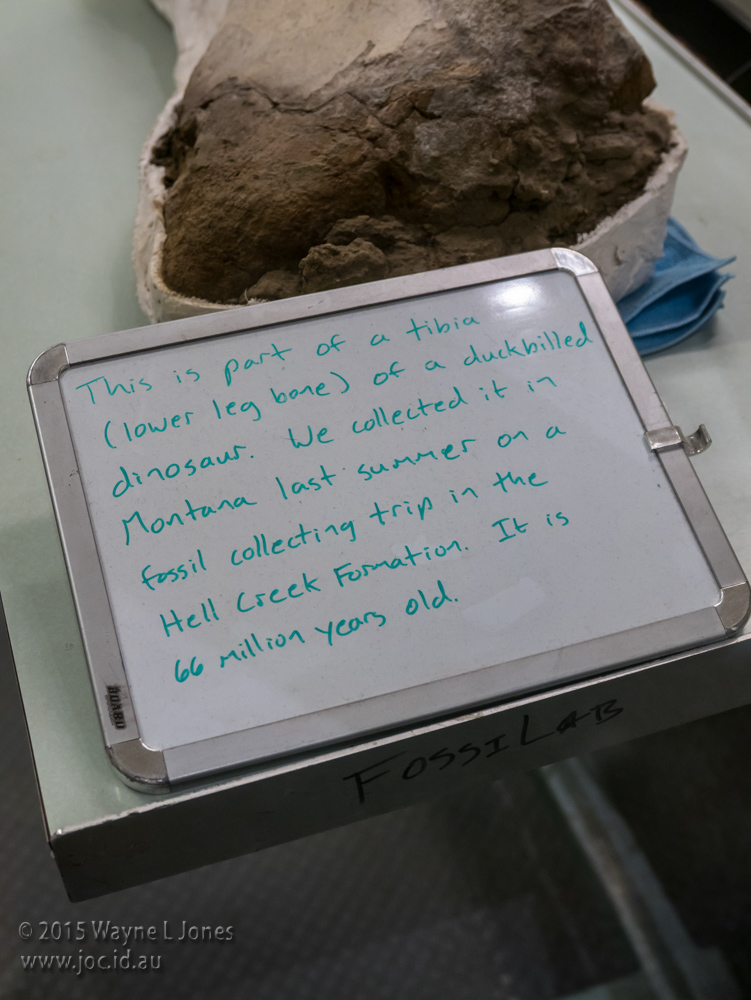 This is part of a tibia
(lower leg bone) of a duckbilled
dinosaur. We collected it in
Montana last summer on a
fossil collecting trip in the
Hell Creek Formation. It is
66 million years old.
BOARD
FOSSILAB
© 2015 Wayne L Jones
www.joc.id.au